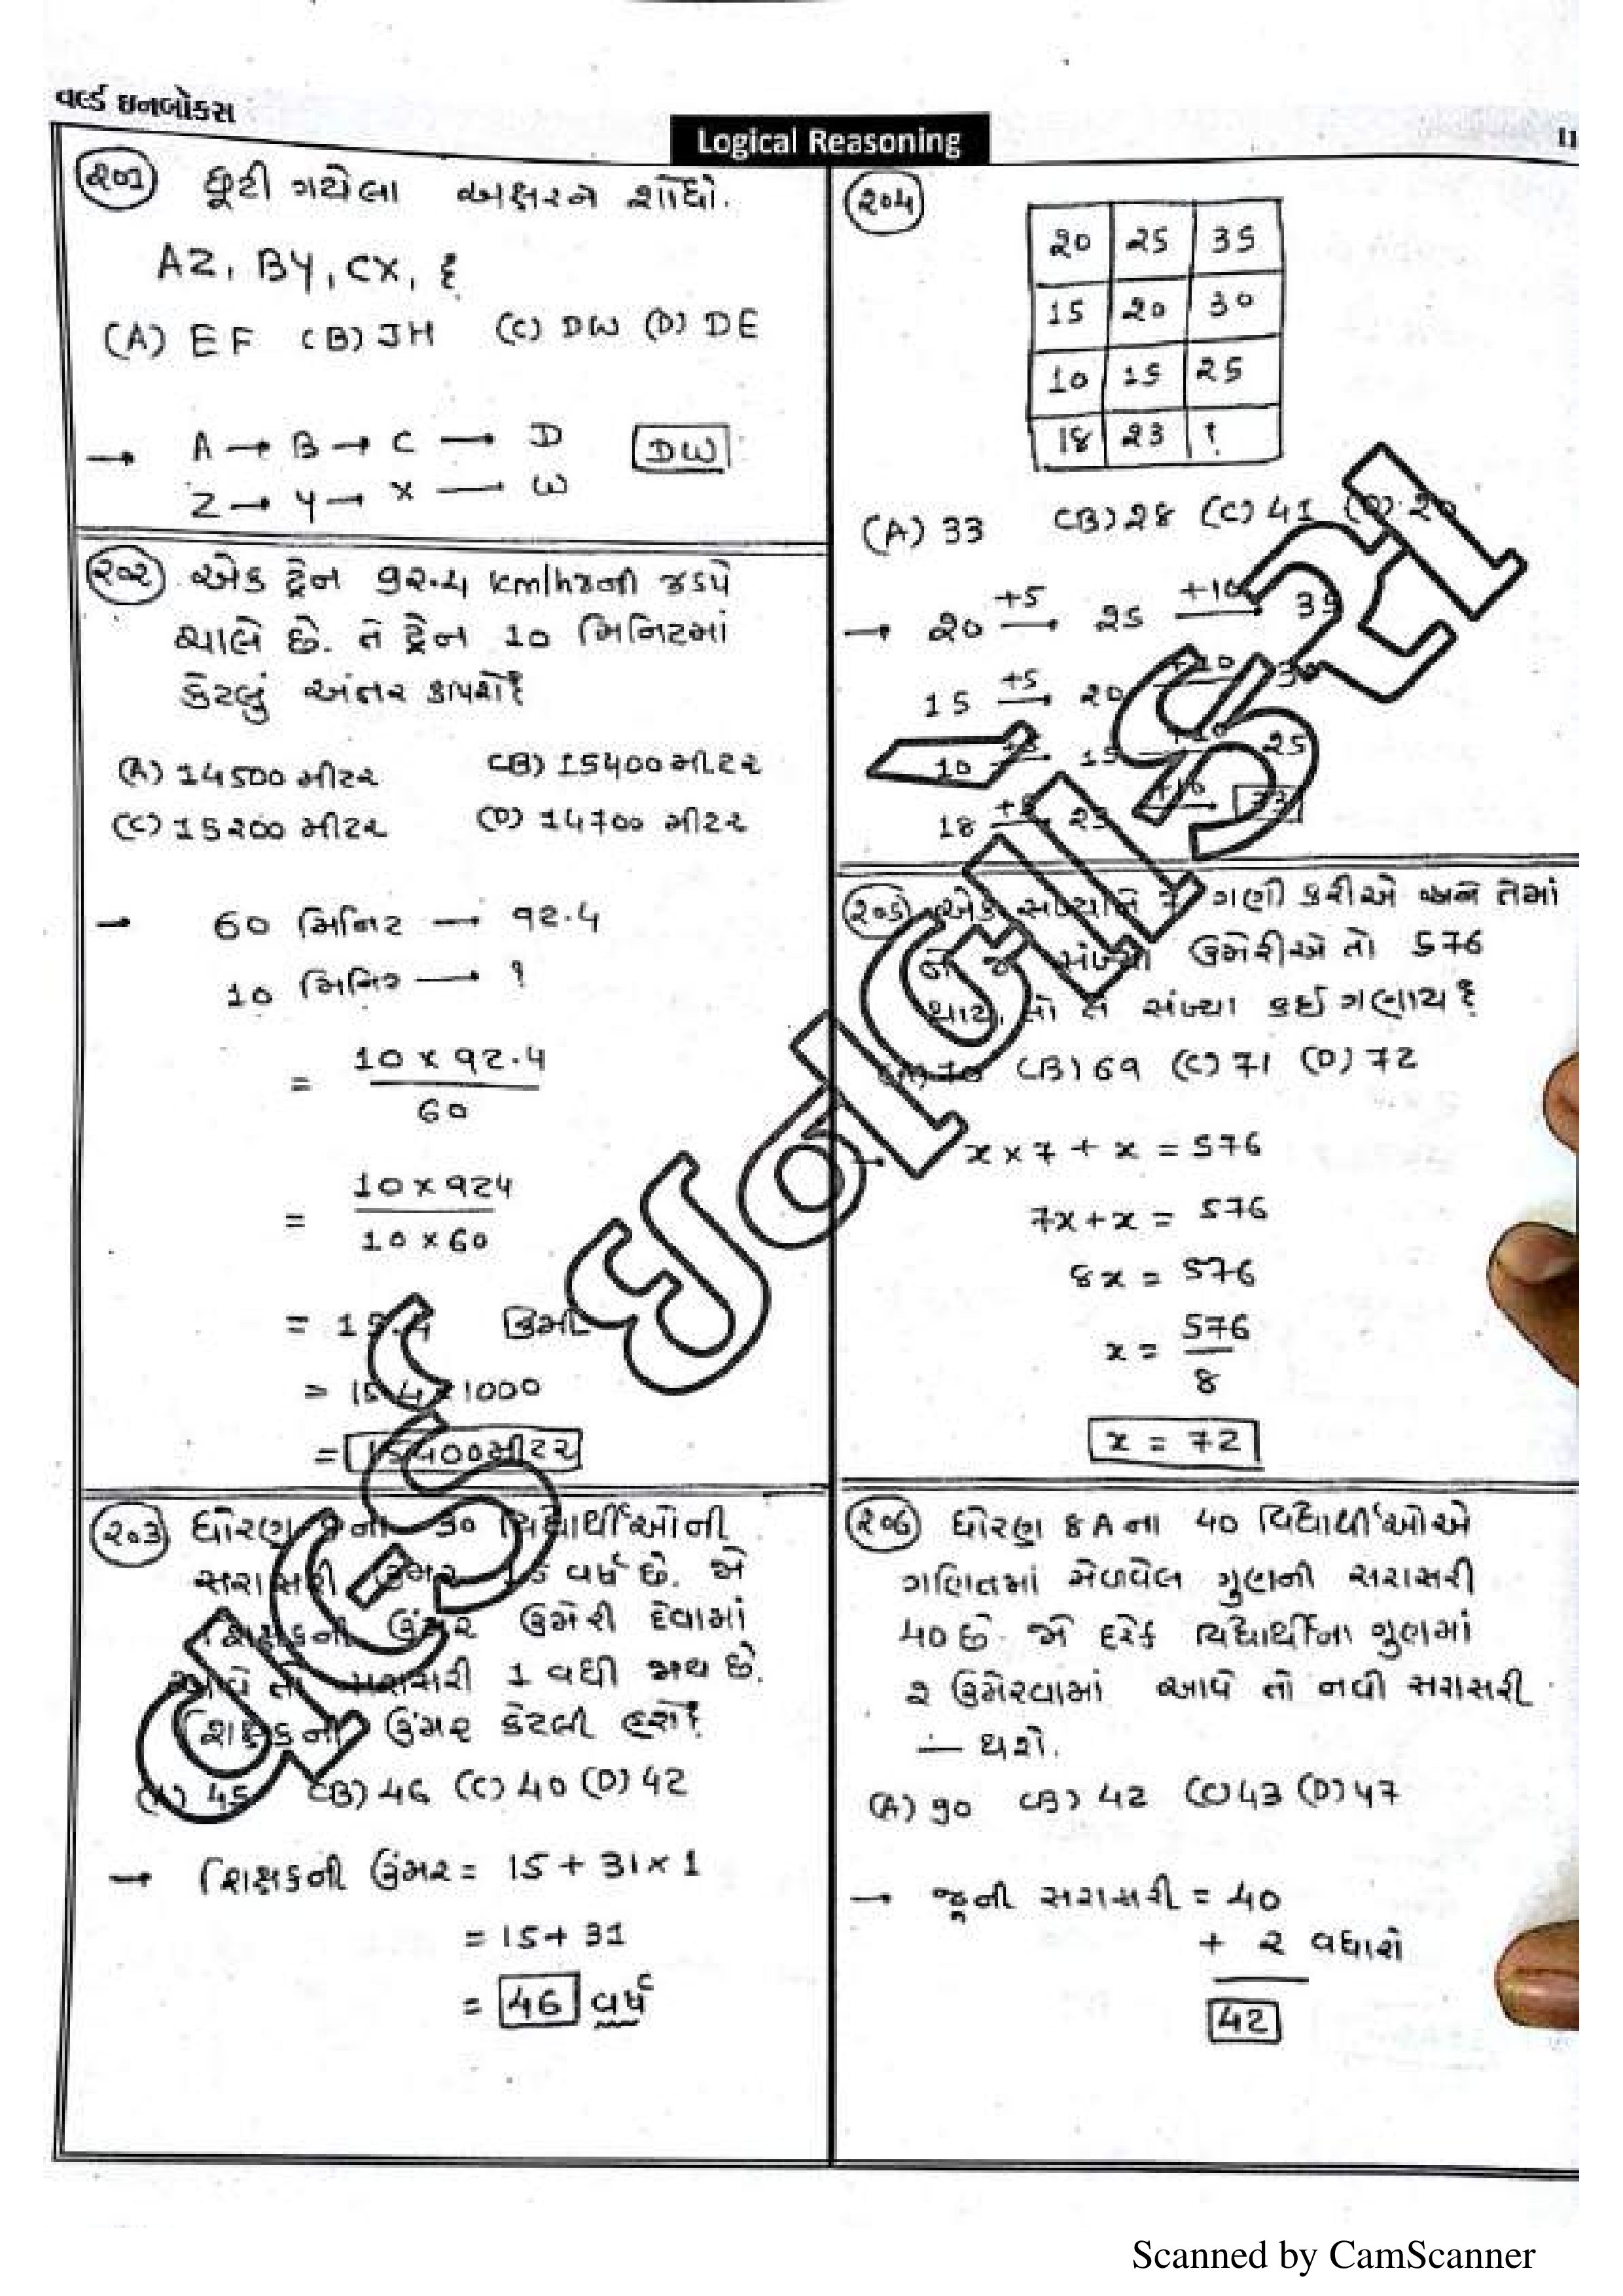 વર્લ્ડ ઇનબોક્સ
Logical Reasoning
૨૦૧ છૂટી ગયેલા અક્ષરને શોધો.
AZ, BY, CX, ?
(A) EF (B) JH (C) DW (D) DE
→ A → B → C → D
Z → Y → X → W
DW
૨૦૨ એક ટ્રેન 92.4 km/hrની ઝડપે
ચાલે છે. તે ટ્રેન 10 મિનિટમાં
કેટલું અંતર કાપશે?
(A) 14500 મીટર (B) 15400 મીટર
(C) 15200 મીટર (D) 14700 મીટર
→ 60 મિનિટ → 92.4
10 મિનિટ → ?
= 10 × 92.4
60
= 10 × 924
10 × 60
= 15.4 કિમી
= 15.4 × 1000
= 15400 મીટર
૨૦૩ ધોરણ 30 વિદ્યાર્થીઓની
સરાસરી ઉંમર 15 વર્ષ છે. જો
શિક્ષકની ઉંમર ઉમેરી દેવામાં
આવે તો સરાસરી 1 વધી જાય છે.
શિક્ષકની ઉંમર કેટલી હશે?
(A) 45 (B) 46 (C) 40 (D) 42
→ શિક્ષકની ઉંમર = 15 + 31 × 1
= 15 + 31
= 46 વર્ષ
૨૦૪
20 25 35
15 20 30
10 15 25
18 23 ?
(A) 33 (B) 28 (C) 41 (D) 20
→ 20 +5→ 25 +10→ 35
15 +5→ 20 +10→ 30
10 → 15 +10→ 25
18 +5→ 23 +10→ 33
૨૦૫ એક ગણી કરીએ અને તેમાં
સંખ્યા ઉમેરીએ તો 576
થાય, તો તે સંખ્યા કઈ ગણાય?
(A) 70 (B) 69 (C) 71 (D) 72
→ x × 7 + x = 576
7x + x = 576
8x = 576
x = 576
8
x = 72
૨૦૬ ધોરણ 8A ના 40 વિદ્યાર્થીઓએ
ગણિતમાં મેળવેલ ગુણની સરાસરી
40 છે. જો દરેક વિદ્યાર્થીના ગુણમાં
૨ ઉમેરવામાં આવે તો નવી સરાસરી
— થશે.
(A) 90 (B) 42 (C) 43 (D) 47
→ જૂની સરાસરી = 40
+ 2 વધારો
42
Scanned by CamScanner